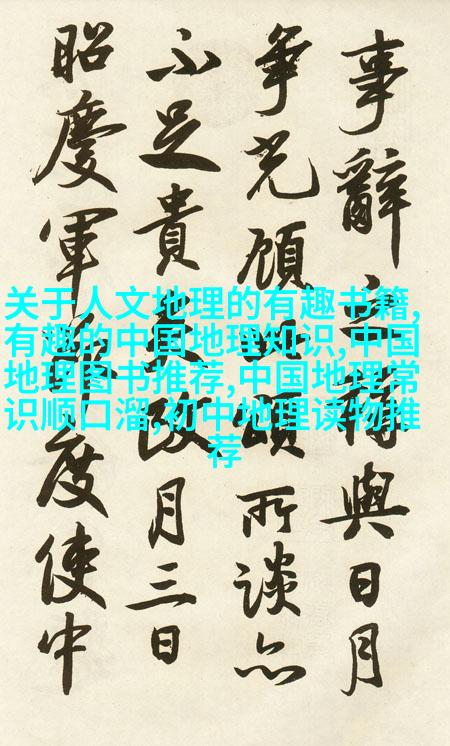 事辭之與日月
爭光顧頌所談亦
不足貴月三日
昭慶軍節度使中
关于人文地理的有趣书籍,
有趣的中国地理知识,中国
地理图书推荐,中国地理常
识顺口溜,初中地理读物推
荐